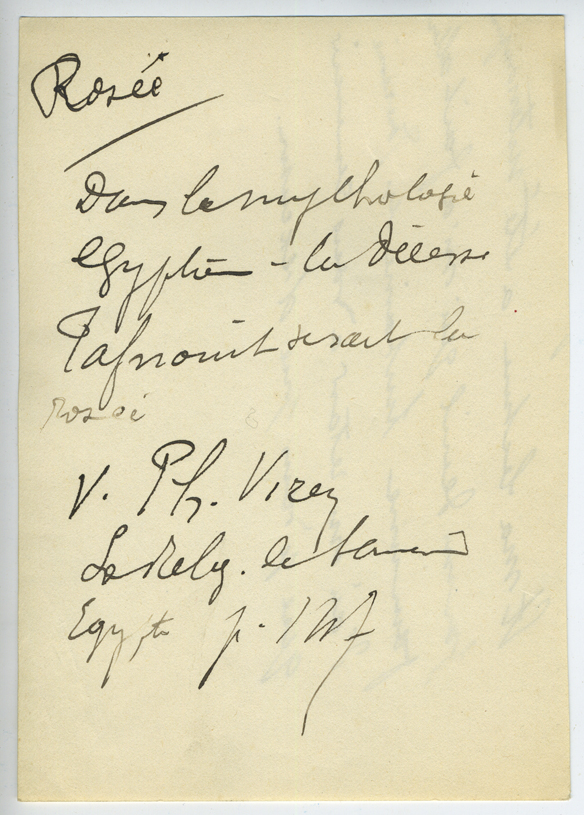 Rosée
Dans la mythologie
Egyptienne - la Déesse
Tafnouit serait la
rosée
V. Ph. Virey
La Relig. de l'ancienne
Egypte p.